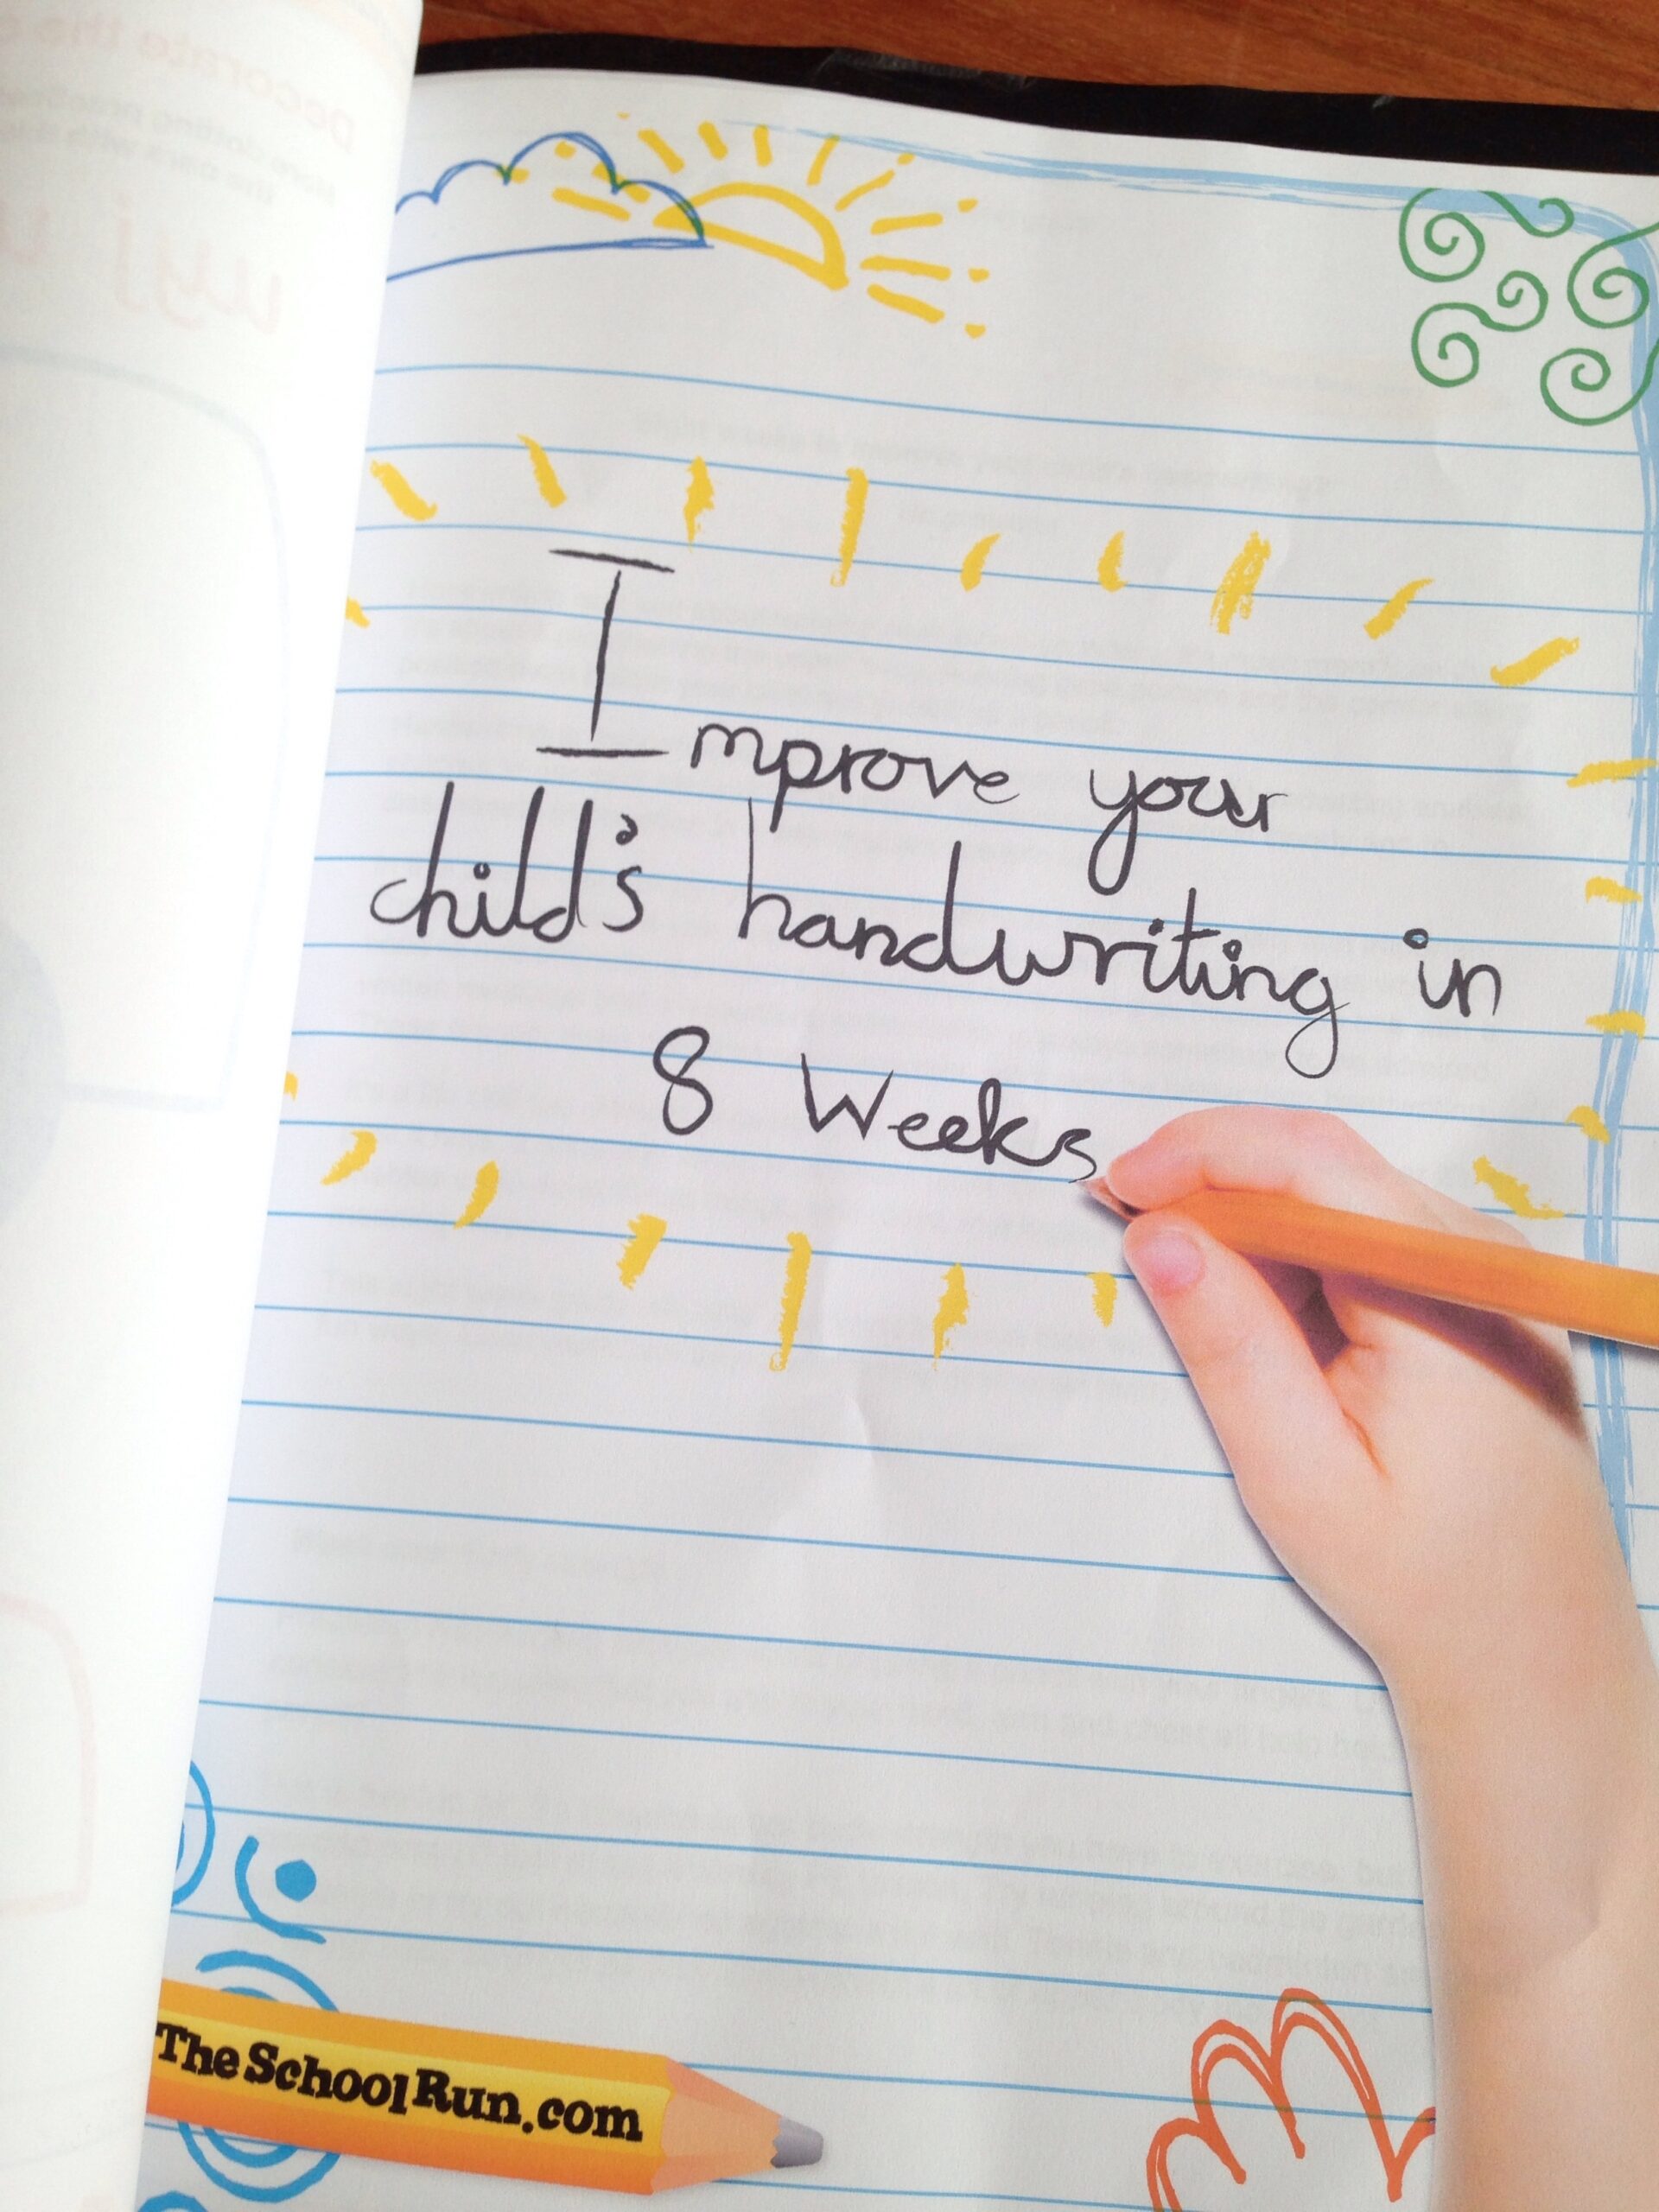 Improve your
child's handwriting in
8 Weeks
TheSchoolRun.com